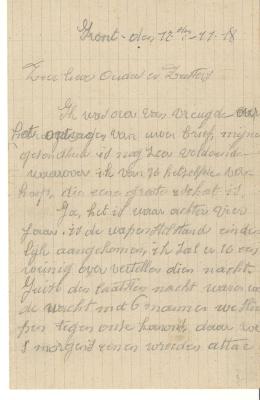 Front - den 17den - 11. 18
Zeer lieve Ouders en Zusters
Ik was vol van vreugde
het ontvangen van uwen brief, mijne
gezondheid is nog zeer voldoende
waarover ik van U hetzelfde ver-
hoop, die eene groote schat is.
Ja, het is waar achter vier
jaar is de wapenstilstand einde-
lijk aangekomen, ik zal er U een
weinig over vertellen dien nacht
Juist den laatsten nacht waren
de wacht met 6 mannen
tegen onze daar
's morgens eenen attac